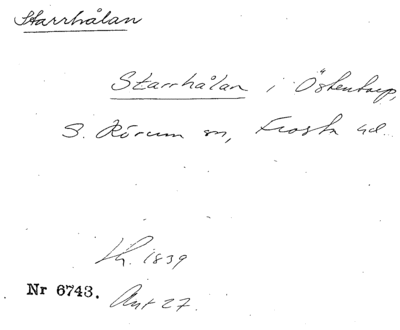 Starrhålan
Starrhålan i Östentorp,
S. Rörum sn, Frosta hd.
Lh. 1839
Nr 6743. Ant 27.